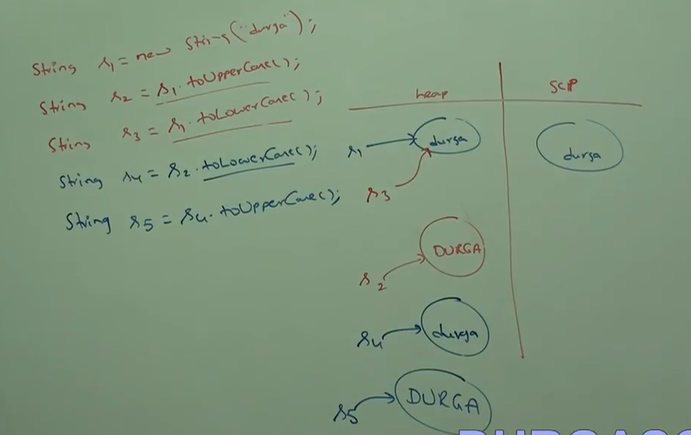 String s1 = new String("durga");
String s2 = s1.toUpperCase();
String s3 = s1.toLowerCase();
String s4 = s2.toLowerCase();
String s5 = s4.toUpperCase();
heap
SCP
s1
durga
durga
s3
DURGA
s2
s4
durga
s5
DURGA